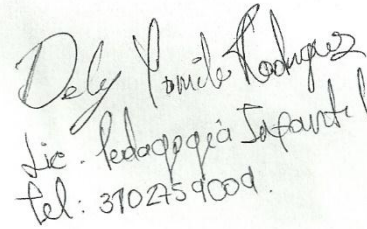 Dely Yomile Rodriguez
Lic. Pedagogía Infantil
Tel: 3102759009.